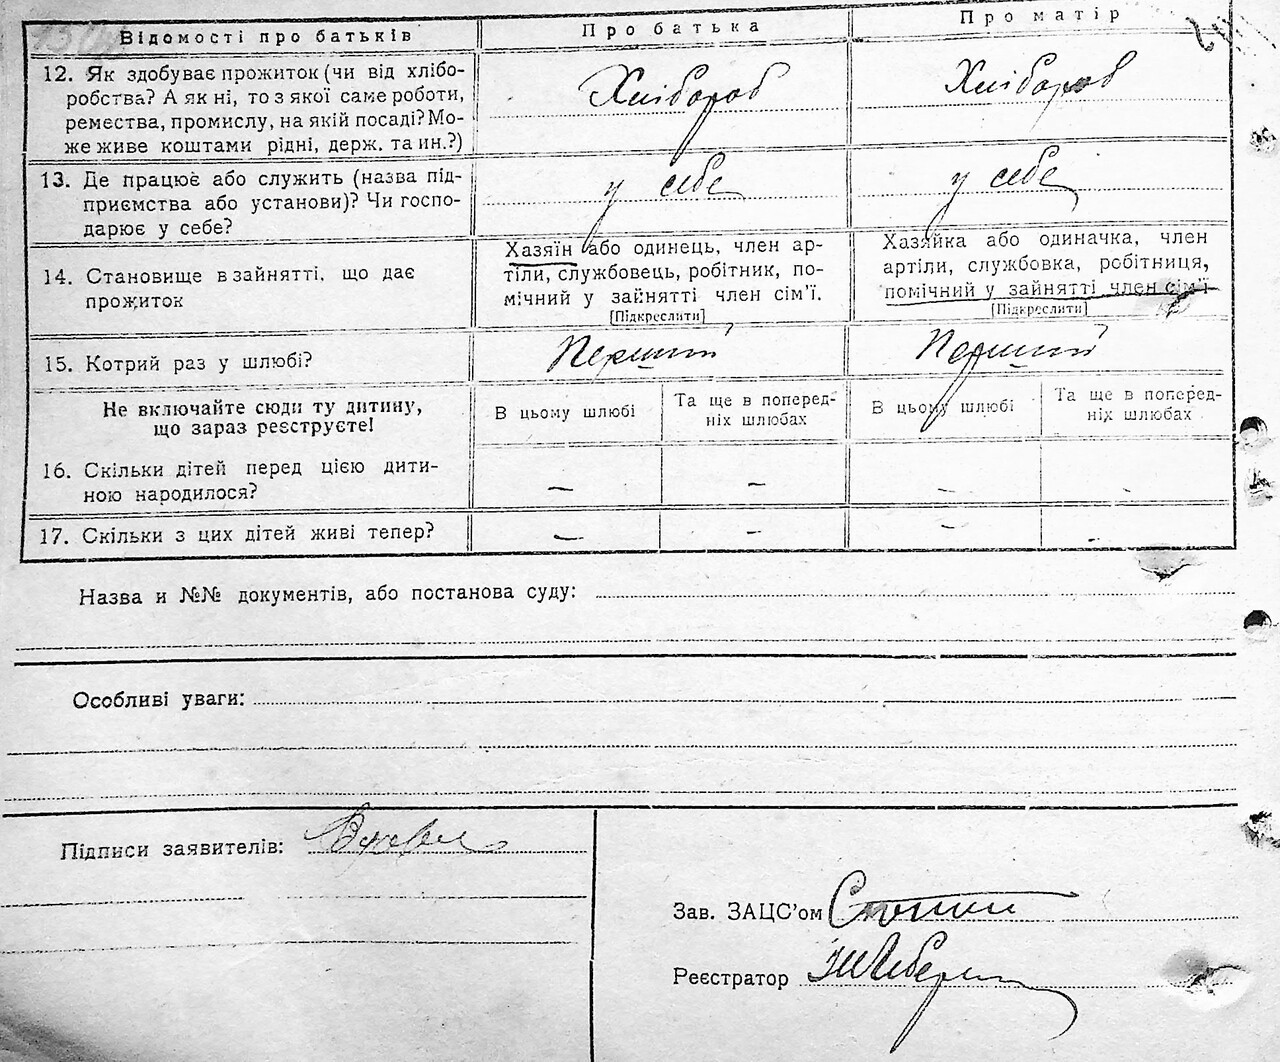 Відомості про батьків Про батька Про матір
12. Як здобуває прожиток (чи від хлібо-
робства? А як ні, то з якої саме роботи,
ремества, промислу, на якій посаді? Мо-
же живе коштами рідні, держ. та ин.?)
Хлібороб Хлібороб
13. Де працює або служить (назва під-
приємства або установи)? Чи госпо-
дарює у себе?
у себе у себе
14. Становище в зайнятті, що дає
прожиток
Хазяїн або одинець, член ар-
тіли, службовець, робітник, по-
мічний у зайнятті член сім'ї.
[Підкреслити]
Хазяйка або одиначка, член
артіли, службовка, робітниця,
помічний у зайнятті член сім'ї
[Підкреслити]
15. Котрий раз у шлюбі?
Перший Перший
Не включайте сюди ту дитину,
що зараз реєструєте!
В цьому шлюбі
Та ще в поперед-
ніх шлюбах
В цьому шлюбі
Та ще в поперед-
ніх шлюбах
16. Скільки дітей перед цією дити-
ною народилося?
— — — —
17. Скільки з цих дітей живі тепер?
— — — —
Назва и №№ документів, або постанова суду:
Особливі уваги:
Підписи заявителів:
Зав. ЗАЦС'ом
Реєстратор